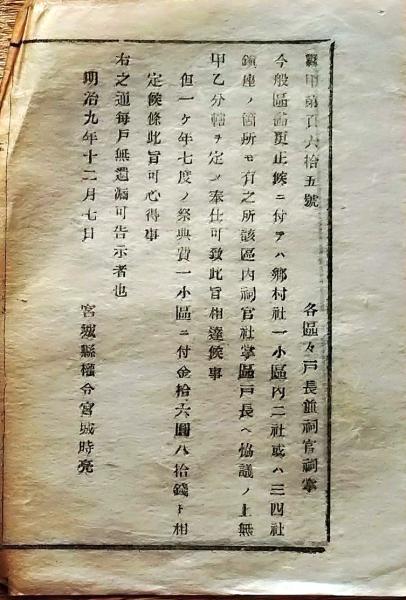 縣甲第百六拾五號
各區々戸長並祠官祠掌
今般區畫更正候ニ付テハ鄉村社一小區內二社或ハ三四社
鎭座ノ箇所モ有之所該區內祠官社掌區戸長ヘ協議ノ上無
甲乙分轄ヲ定メ奉仕可致此旨相達候事
但一ケ年七度ノ祭典費一小區ニ付金拾六圓八拾錢ト相
定候條此旨可心得事
右之通每戸無遺漏可告示者也
明治九年十二月七日
宮城縣權令宮城時亮